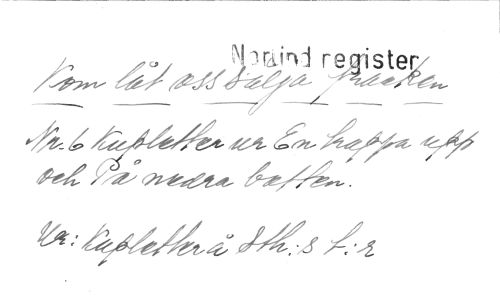 Norlind register
Kom låt oss sälja fracken
Nr. 6 Kupletter ur En trappa upp
och På nedra botten.
Ur: Kupletter å Sth:s t:r